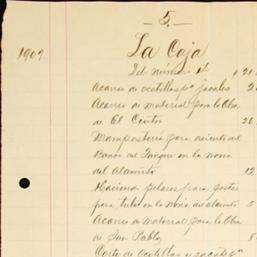 - 5. -
1909 La Caja
Del número 4 $ 21
Acarreo de ocotillas pa jacales 2
Acarreo de material para la Obra
de El Centro 20
Mampostería para asiento del
Banco del Tanque en la noria
del Alamito 12
Hacienda pilares para postes
para tubo en la Noria del alamito 5
Acarreo de material para la Obra
de San Pablo 8
Corte de Ocotillas y zacate pa